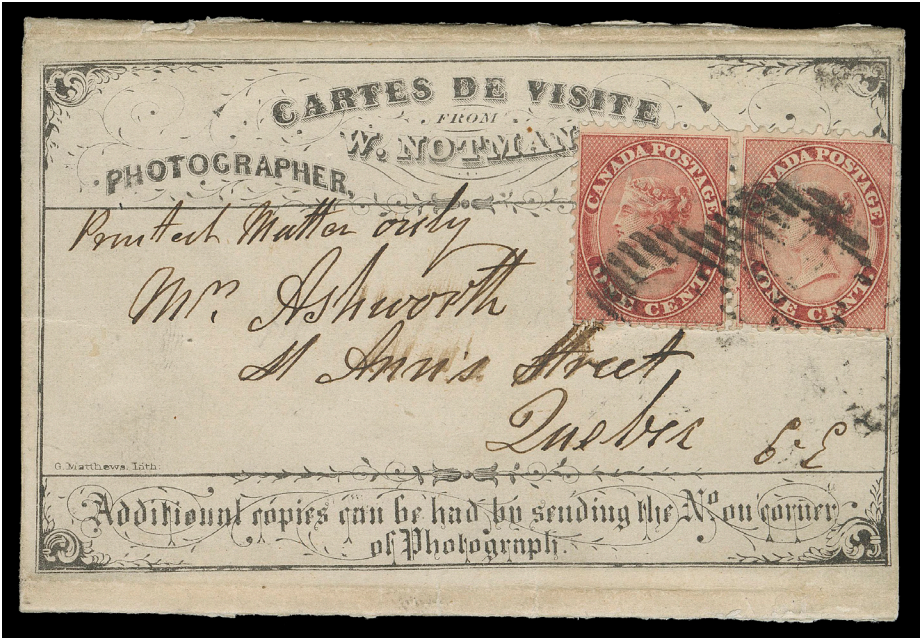 CARTES DE VISITE
FROM
W. NOTMAN
PHOTOGRAPHER,
CANADA POSTAGE
ONE CENT.
CANADA POSTAGE
ONE CENT.
Printed Matter only
Mrs Ashworth
St Ann's Street
Quebec C. E
G. Matthews. Lith.
Additional copies can be had by sending the No. on corner
of Photograph.